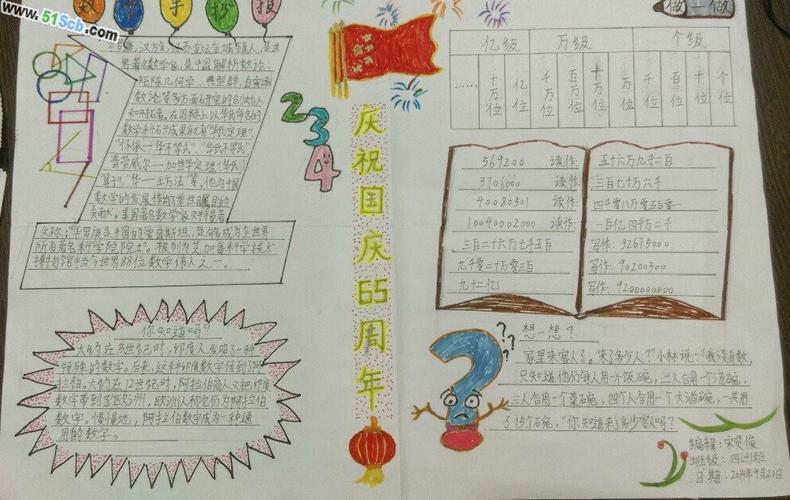 www.51Scb.com
数学手抄报
华罗庚,汉族,江苏金坛金城镇人,是世
界著名数学家,是中国解析数论、
矩阵几何学、典型群、自安函
数论等多方面研究的创始人
和开拓者。在国际上以华氏命名的
数学科研成果就有"华氏定理"、
"怀依—华不等式"、"华氏不等式"、
普劳威尔—加当华定理"、"华氏
算子"、"华—王方法"等,他为中国
数学的发展作出了举世瞩目的
贡献。美国著名数学家贝特曼著
文称:"华罗庚是中国的爱因斯坦,足够成为全世界
所有著名科学院院士"。被列为芝加哥科学技术
博物馆中当今世界88位数学伟人之一。
234
你知道吗?
大约在3世纪时,印度人发明了一种
特殊的数字。后来,这种印度数字传到了阿
拉伯。大约在12世纪时,阿拉伯商人又把印度
数字带到了欧洲,欧洲人称它们为阿拉伯
数字。慢慢地,阿拉伯数字成为一种通
用的数字。
庆祝国庆65周年
做一做
亿级 万级 个级
…… 十亿位 亿位 千万位 百万位 十万位 万位 千位 百位 十位 个位
569200 读作: 五十六万九千二百
3706000 读作: 三百七十万六千
40080501 读作: 四千零八万零五百零一
10040002000 读作: 一百亿四千万二千
三百二十六万七千五百 写作: 32675000
九千零二十万零三百 写作: 90200300
九十二亿 写作: 9200000000
想一想?
家里来客人了。"来了多少人?"小林说:"我没有数,
只知道他们每人用一个饭碗,二人合用一个汤碗,
三人合用一个菜碗,四个人合用一个大酒碗,一共用
了15个碗。"你知道来了多少客人吗?
编辑:宋贤俊
班级:四(4)班
日期:2014年9月20日